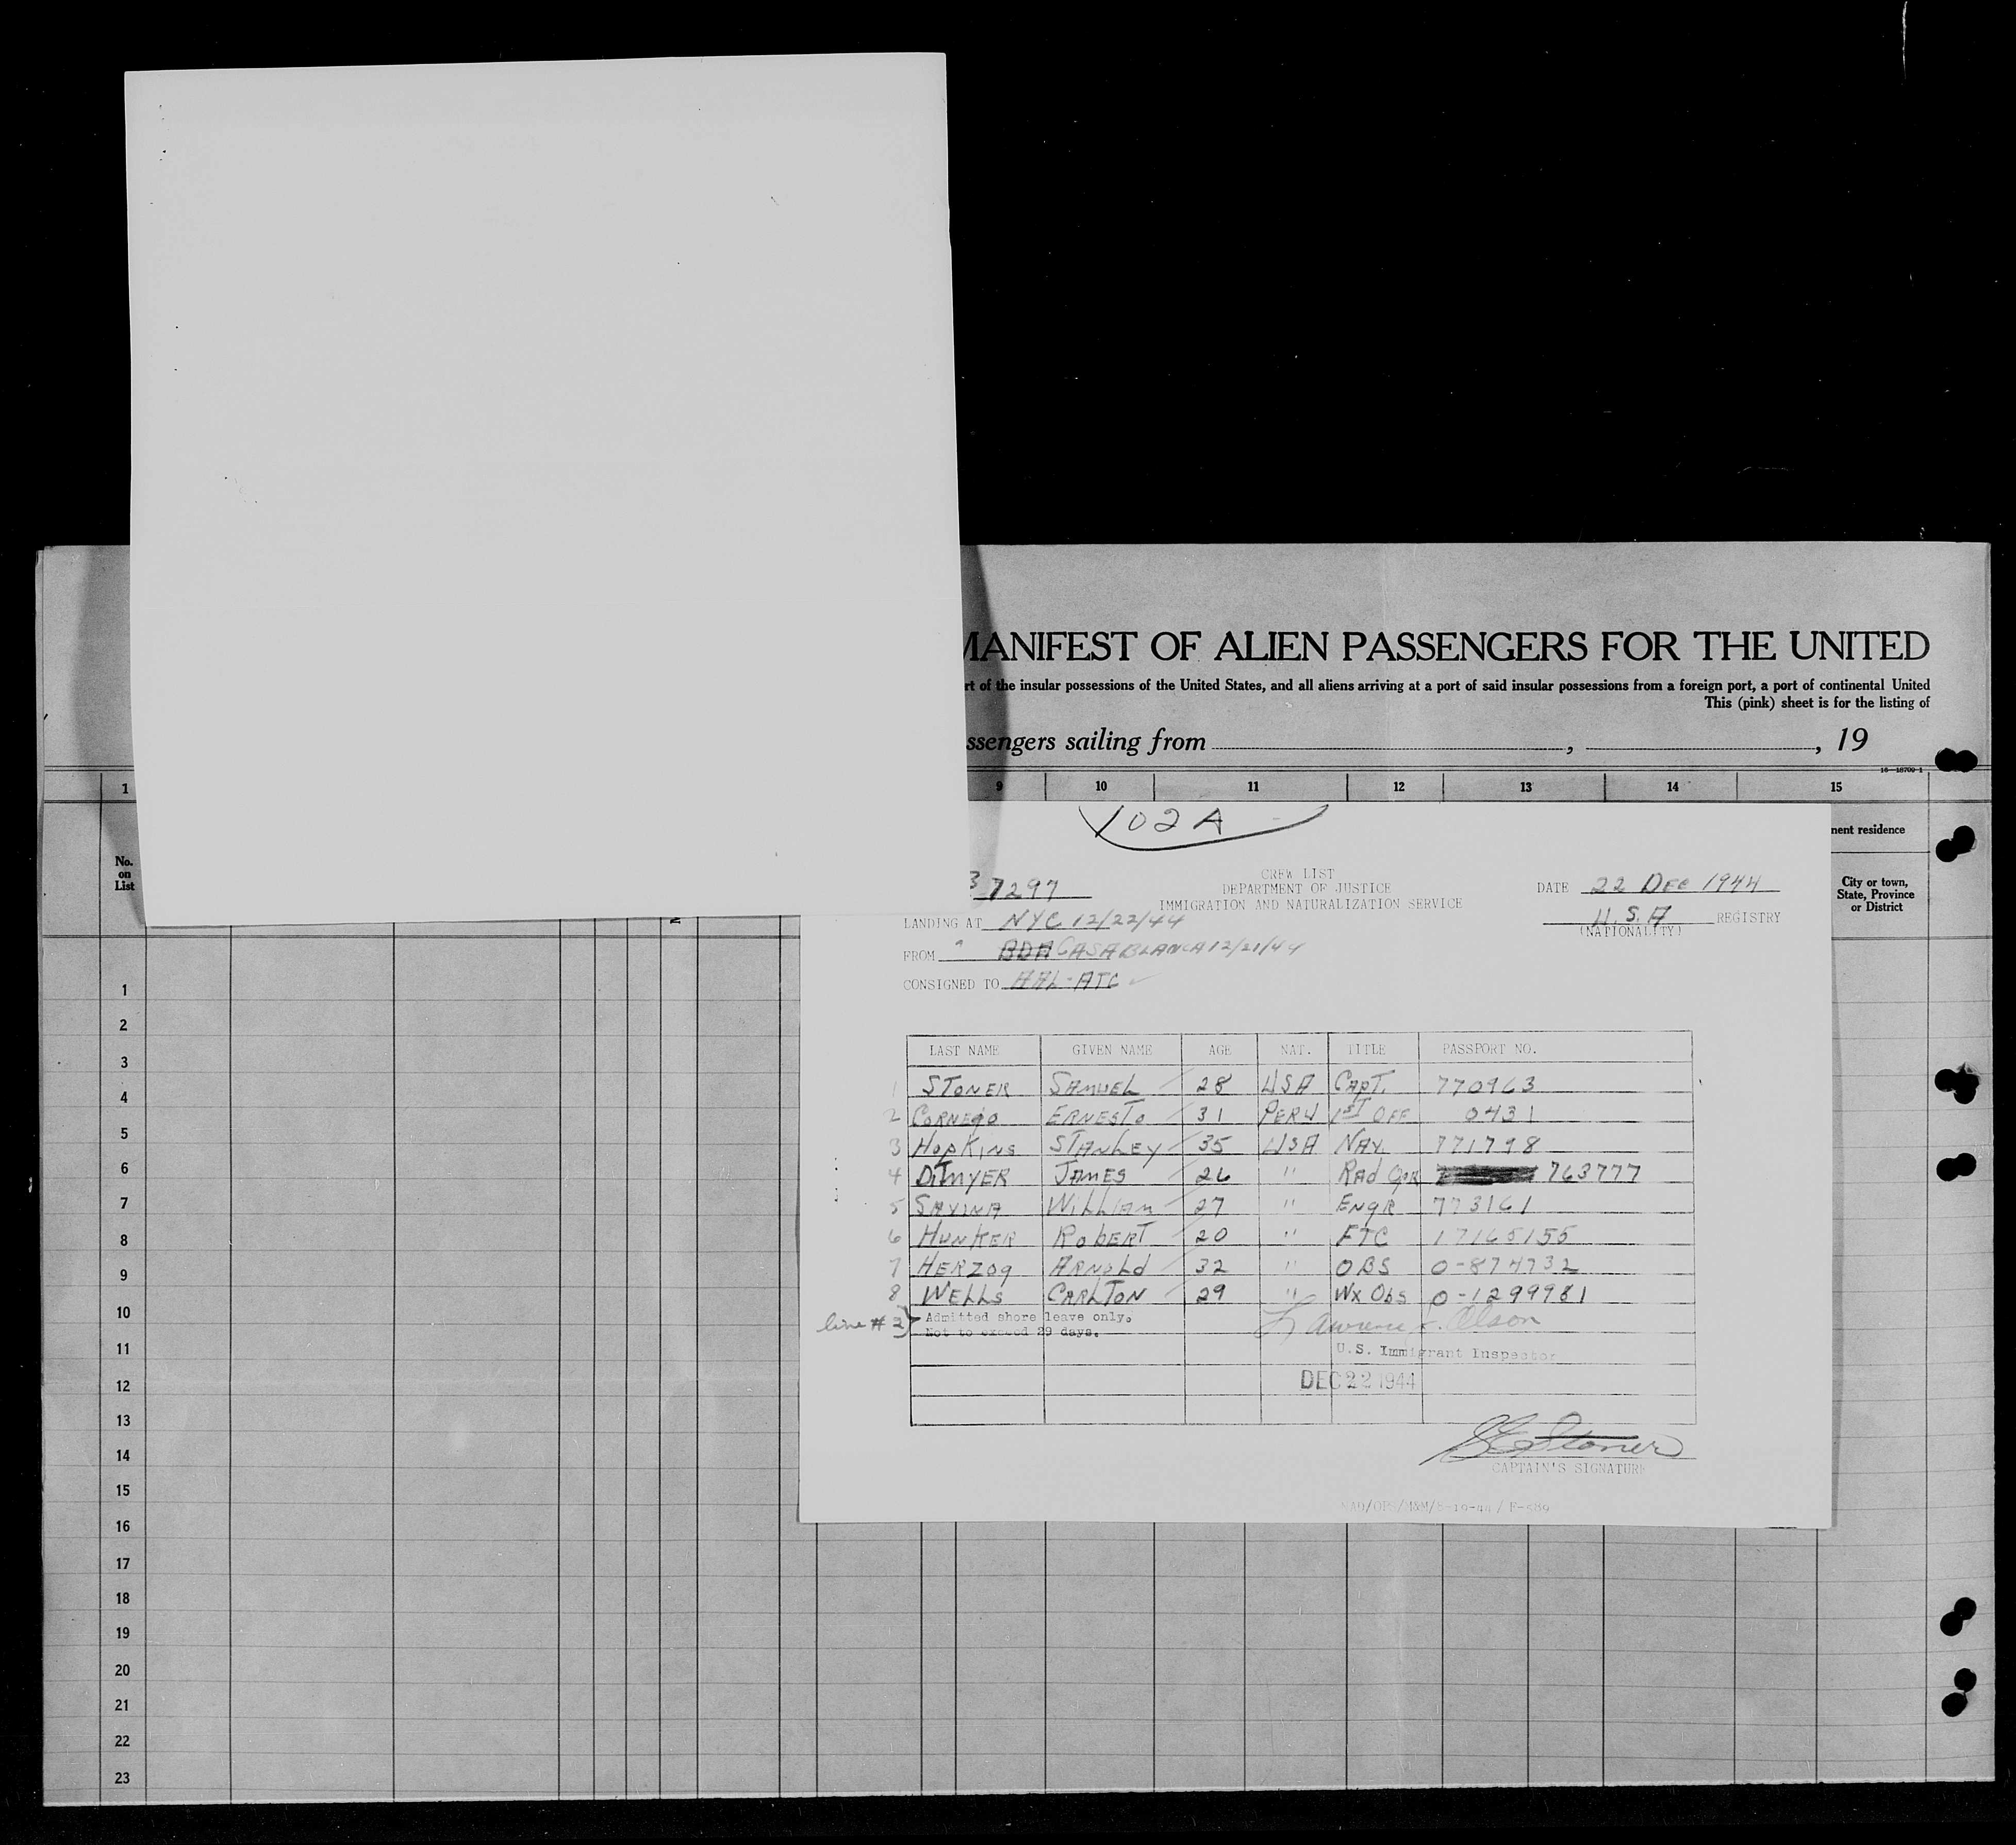 MANIFEST OF ALIEN PASSENGERS FOR THE UNITED
rt of the insular possessions of the United States, and all aliens arriving at a port of said insular possessions from a foreign port, a port of continental United
This (pink) sheet is for the listing of
ssengers sailing from , , 19
16—18709-1
1 9 10 11 12 13 14 15
102 A
nent residence
No. on List
City or town, State, Province or District
37297
CREW LIST
DEPARTMENT OF JUSTICE
IMMIGRATION AND NATURALIZATION SERVICE
DATE 22 DEC 1944
U.S.A REGISTRY
(NATIONALITY)
LANDING AT NYC 12/22/44
FROM BDA CASABLANCA 12/21/44
CONSIGNED TO AAL-ATC
LAST NAME GIVEN NAME AGE NAT. TITLE PASSPORT NO.
1 STONER SAMUEL 28 USA CAPT. 770963
2 CORNEJO ERNESTO 31 PERU 1ST OFF 0431
3 HOPKINS STANLEY 35 USA NAV. 771798
4 DITMYER JAMES 26 " RAD OPR 763777
5 SAVINA WILLIAM 27 " ENGR 773161
6 HUNKER ROBERT 20 " FTC 17165155
7 HERZOG ARNOLD 32 " OBS 0-874732
8 WELLS CARLTON 29 " WX OBS 0-1299981
line # 2} Admitted shore leave only.
Not to exceed 29 days.
Lawrence Olson
U.S. Immigrant Inspector
DEC 22 1944
S Stoner
CAPTAIN'S SIGNATURE
1
2
3
4
5
6
7
8
9
10
11
12
13
14
15
16
17
18
19
20
21
22
23